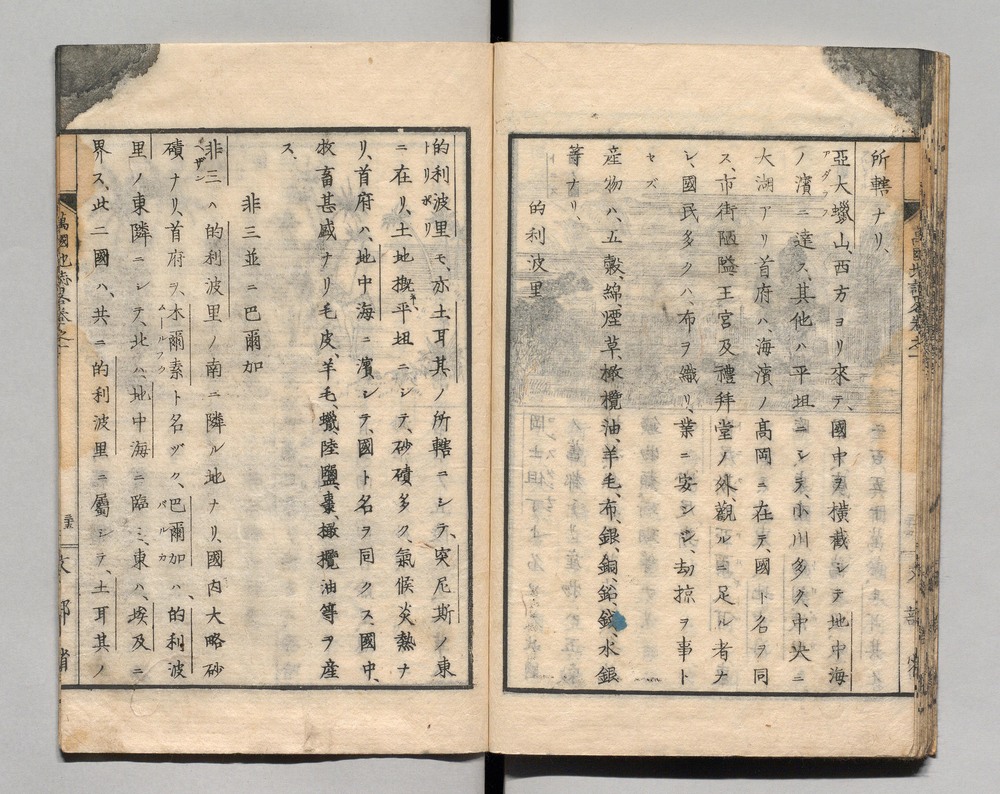 所轄ナリ、
亞大蠟山、西方ヨリ來テ、國中ヲ横截シテ地中海
アダラフ
ノ濱ニ達ス、其他ハ平坦ニシテ、小川多ク、中央ニ
大湖アリ首府ハ、海濱ノ高岡ニ在テ、國ト名ヲ同
ス、市街陋隘、王宮及禮拜堂ノ外、觀ルニ足ル者ナ
シ、國民多クハ、布ヲ織リ、業ニ安シシ、劫掠ヲ事ト
セズ
産物ハ、五穀、綿、煙草、橄欖油、羊毛、布、銀、銅、鉛、銕、水銀
等ナリ、
的利波里
的利波里モ、亦土耳其ノ所轄ニシテ、突尼斯ノ東
トリポリ
ニ在リ、土地概平坦ニシテ、砂磧多ク、氣候炎熱ナ
リ、首府ハ、地中海ニ濱シテ、國ト名ヲ同クス國中、
牧畜甚盛ナリ毛皮、羊毛、蠟、陸鹽、棗、橄欖油等ヲ産
ス、
非三並ニ巴爾加
非三ハ的利波里ノ南ニ隣ル地ナリ、國内大略砂
ヘザン
磧ナリ、首府ヲ、木爾素ト名ヅク、巴爾加ハ、的利波
ムールフク
バルカ
里ノ東隣ニシテ、北ハ、地中海ニ臨ミ、東ハ、埃及ニ
界ス、此二國ハ、共ニ的利波里ニ屬シテ、土耳其ノ
萬國地誌畧卷之二
文部省